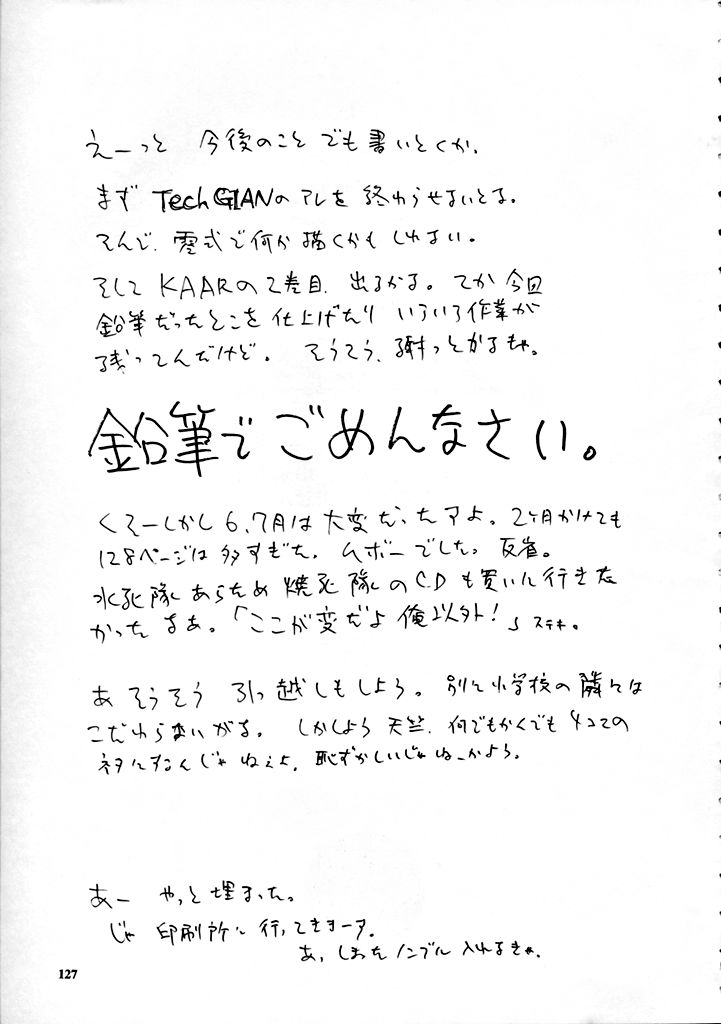 えーっと 今後のこと でも書いとくか、
まず TechGIANのアレを終わらせないとな。
そんで、零式で何か描くかもしれない。
そして KAARの2巻目、出るかな。てか今回
鉛筆だったとこを仕上げたり いろいろ作業が
残ってんだけど。 そうそう、謝っとかなきゃ。
鉛筆でごめんなさい。
くそーしかし6、7月は大変だったアよ。2ヶ月かけても
128ページは多すぎた、ムボーでした。反省。
水死隊あらため 焼死隊のCDも買いに行きた
かったなあ。「ここが変だよ俺以外!」ステキ。
あ そうそう 引っ越しもしよう。別に小学校の隣には
こだわらないがな。 しかしよう 天竺、何でもかくでも4コマの
ネタにすんじゃねぇよ、恥ずかしいじゃねーかよう。
あー やっと埋まった。
じゃ 印刷所に行ってきまーす。
あ、しまった ノンブル 入れなきゃ、
127